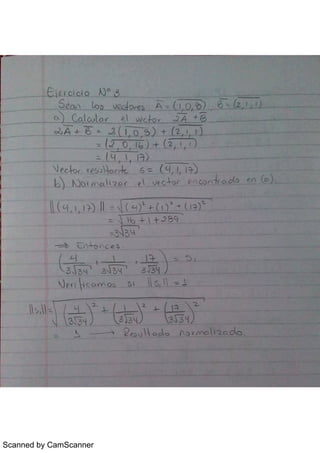 Ejercicio Nº 3
Sean los vectores A = (1,0,8) B = (2,1,1)
a) Calcular el vector 2A + B
2A + B = 2(1,0,8) + (2,1,1)
= (2,0,16) + (2,1,1)
= (4,1,17)
Vector resultante S = (4,1,17)
b) Normalizar el vector encontrado en (a).
||(4,1,17)|| = √(4)² + (1)² + (17)²
= √16 + 1 + 289
= 3√34
⇒ Entonces
(4/3√34, 1/3√34, 17/3√34) = S₁
Verificamos si ||S₁|| = 1
||S₁|| = √(4/3√34)² + (1/3√34)² + (17/3√34)²
= 1 → Resultado normalizado.
Scanned by CamScanner